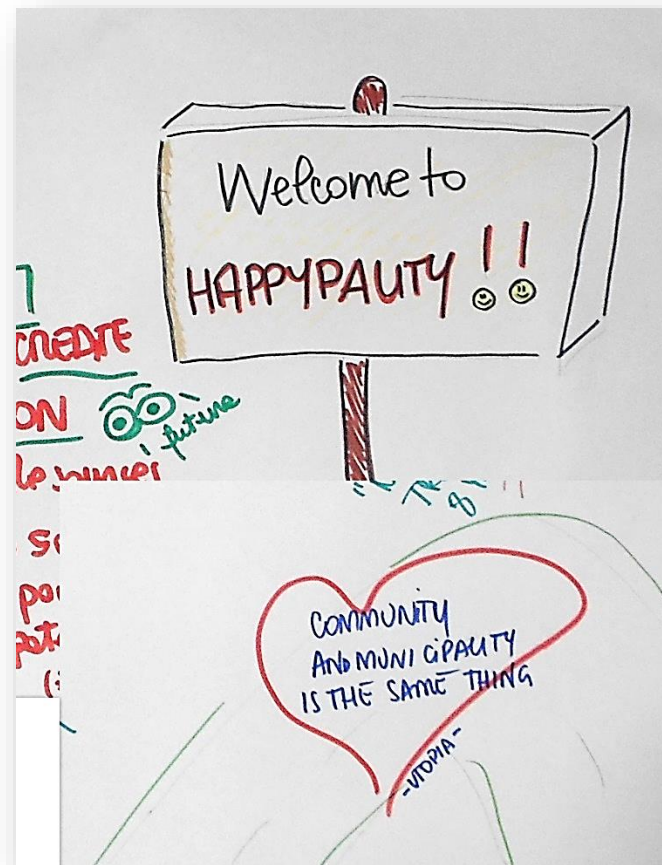 Welcome to
HAPPYPALITY !!
CREATE
ON
future
COMMUNITY
AND MUNICIPALITY
IS THE SAME THING
-UTOPIA-